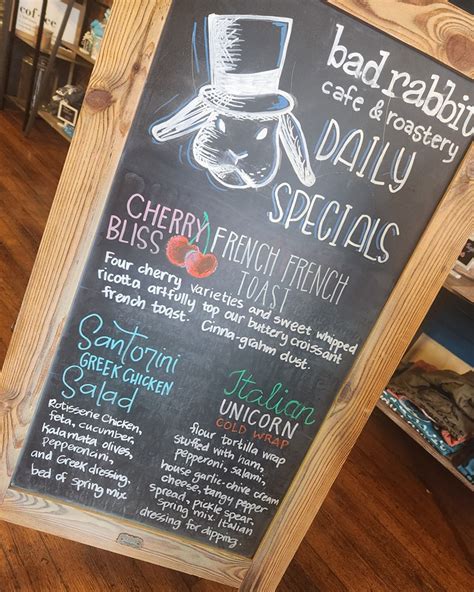 bad rabbit
cafe & roastery
DAILY
SPECIALS
CHERRY
BLISS
FRENCH FRENCH
TOAST
Four cherry varieties and sweet, whipped
ricotta artfully top our buttery croissant
french toast. Cinna-grahm dust.
Santorini
GREEK CHICKEN
Salad
Rotisserie Chicken,
feta, cucumber,
Kalamata olives,
pepperoncini,
and Greek dressing,
bed of spring mix
Italian
UNICORN
COLD WRAP
flour tortilla wrap
stuffed with ham,
pepperoni, salami,
house garlic-chive cream
cheese, tangy pepper
spread, pickle spear,
spring mix. Italian
dressing for dipping.